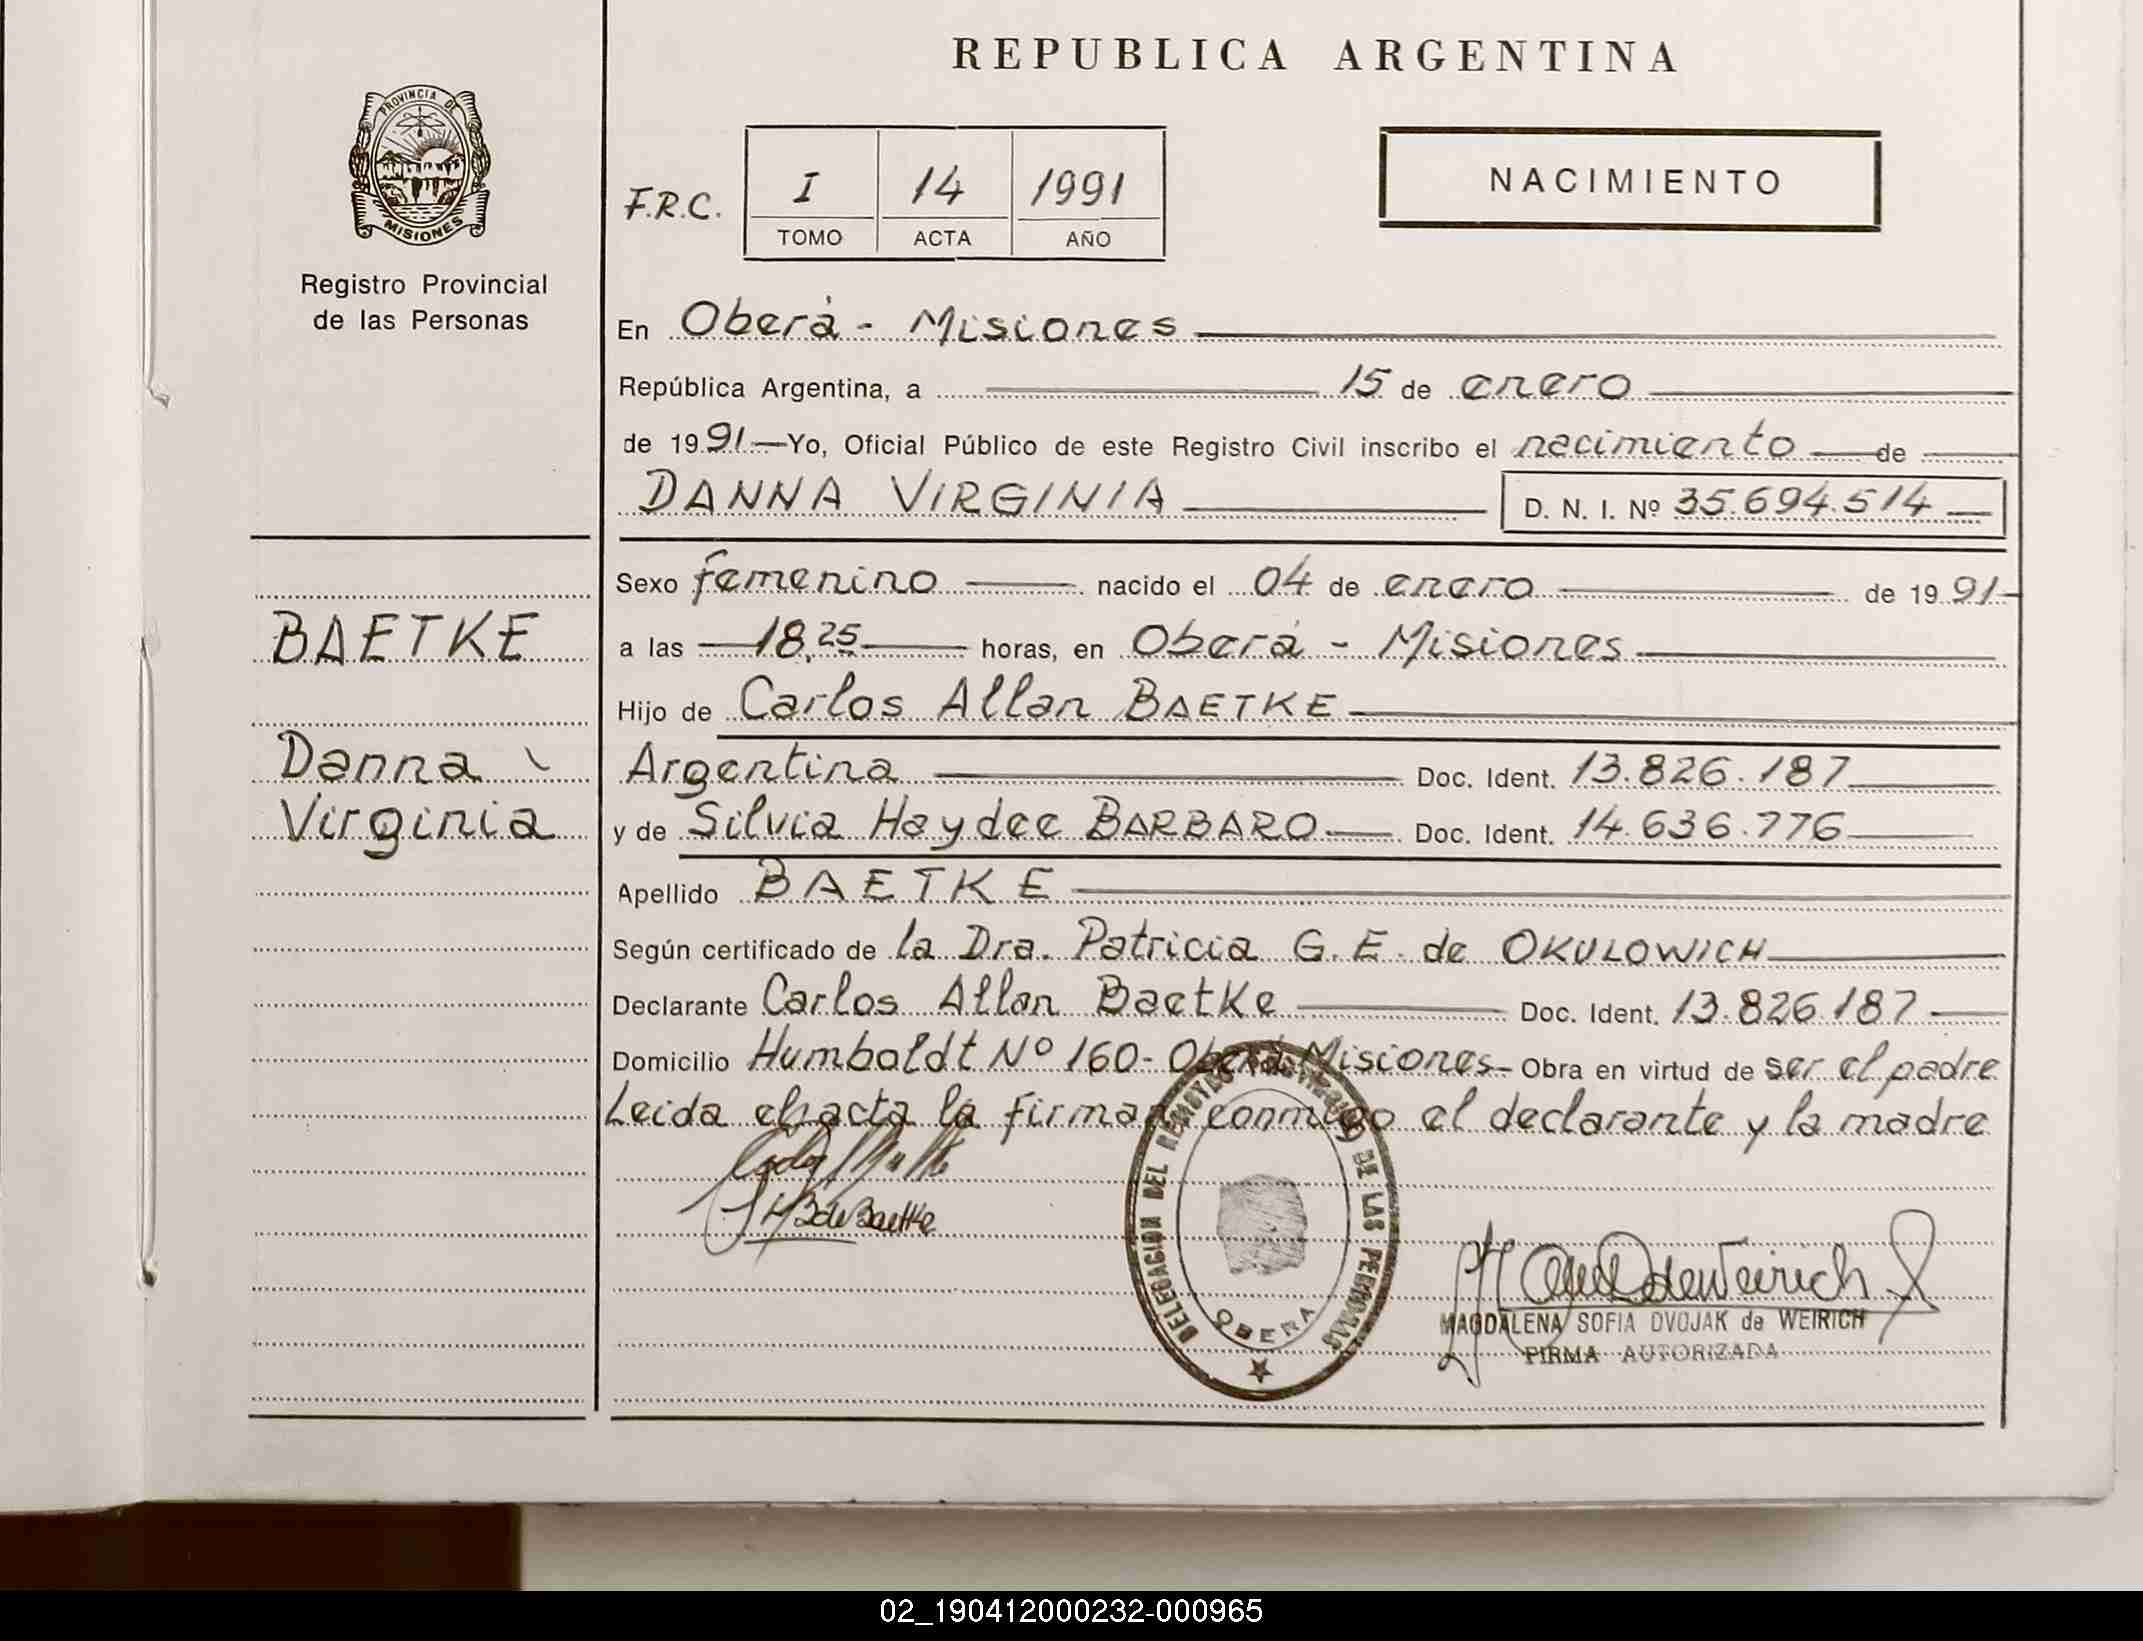 REPUBLICA ARGENTINA
PROVINCIA DE
MISIONES
Registro Provincial
de las Personas
F.R.C.
I 14 1991
TOMO ACTA AÑO
NACIMIENTO
En Oberá - Misiones
República Argentina, a 15 de enero
de 1991 Yo, Oficial Público de este Registro Civil inscribo el nacimiento de
DANNA VIRGINIA D. N. I. Nº 35.694.514
Sexo femenino nacido el 04 de enero de 1991
BAETKE
a las 18,25 horas, en Oberá - Misiones
Hijo de Carlos Allan BAETKE
Danna
Virginia
Argentina Doc. Ident. 13.826.187
y de Silvia Haydee BARBARO Doc. Ident. 14.636.776
Apellido BAETKE
Según certificado de la Dra. Patricia G. E. de OKULOWICH
Declarante Carlos Allan Baetke Doc. Ident. 13.826.187
Domicilio Humboldt Nº 160- Oberá Misiones- Obra en virtud de ser el padre
Leida el acta la firman conmigo el declarante y la madre
DELEGACION DEL REGISTRO PROVINCIAL DE LAS PERSONAS
OBERA
MAGDALENA SOFIA DVOJAK de WEIRICH
FIRMA AUTORIZADA
02_190412000232-000965